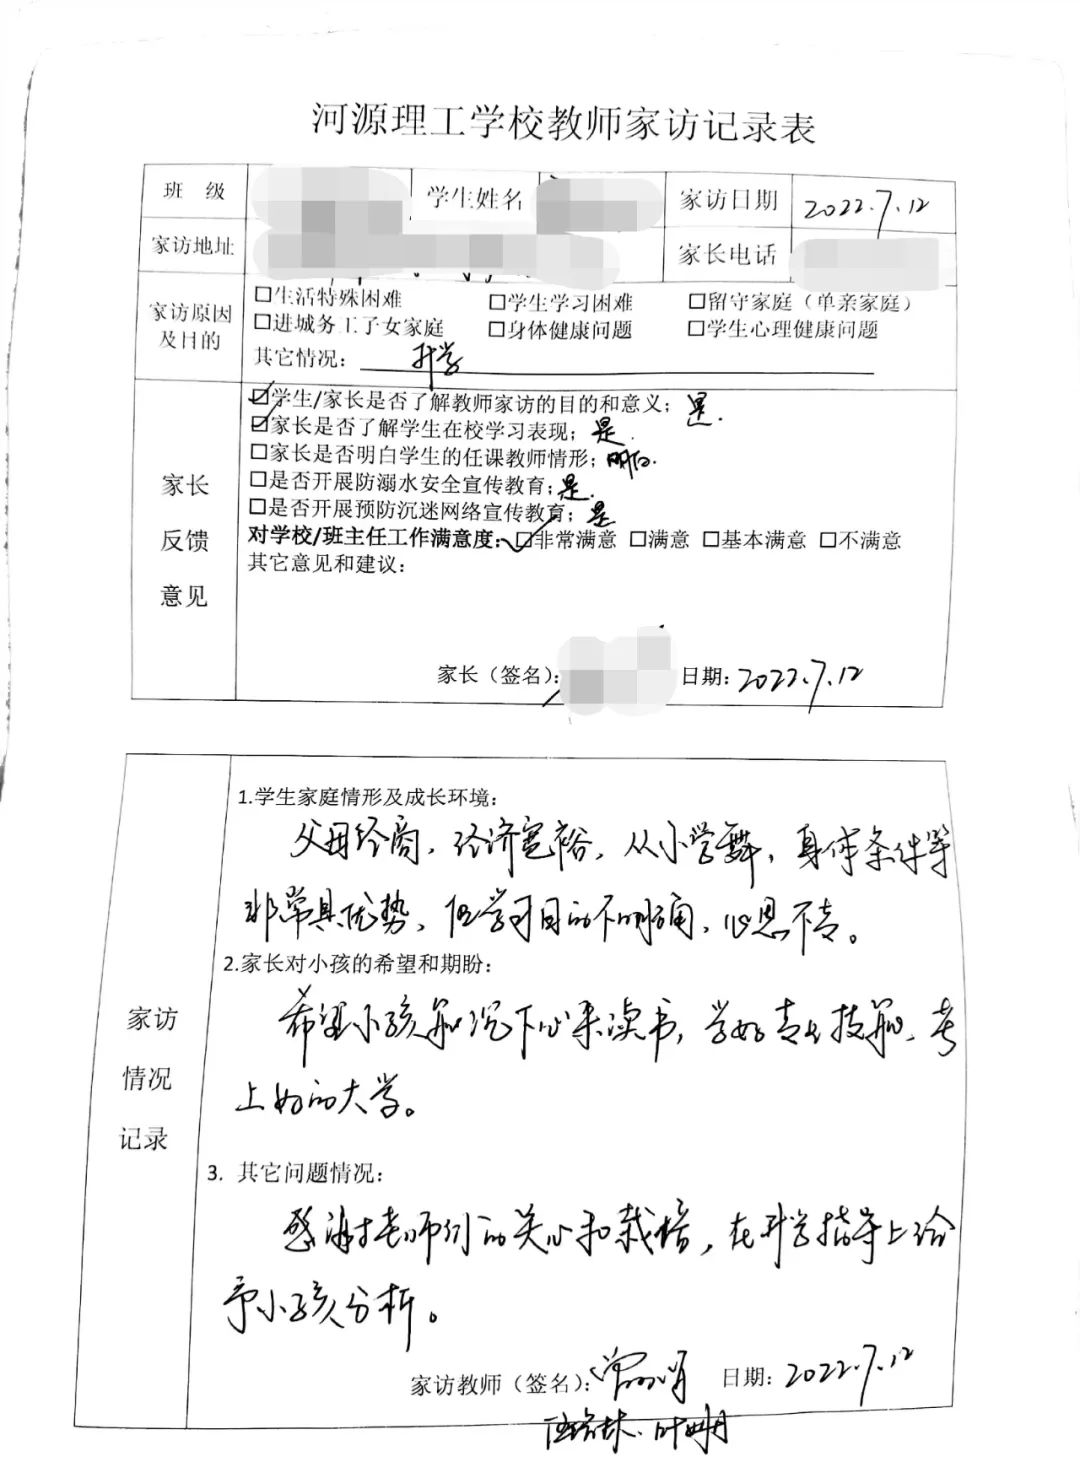 河源理工学校教师家访记录表
班 级 学生姓名 家访日期 2022.7.12
家访地址 家长电话
家访原因及目的
□生活特殊困难 □学生学习困难 □留守家庭（单亲家庭）
□进城务工子女家庭 □身体健康问题 □学生心理健康问题
其它情况：升学
家长反馈意见
☑学生/家长是否了解教师家访的目的和意义；是.
☑家长是否了解学生在校学习表现；是.
□家长是否明白学生的任课教师情形；明白.
□是否开展防溺水安全宣传教育；是.
□是否开展预防沉迷网络宣传教育；是
对学校/班主任工作满意度：☑非常满意 □满意 □基本满意 □不满意
其它意见和建议：
家长（签名）： 日期：2022.7.12
家访情况记录
1.学生家庭情形及成长环境：
父母经商，经济宽裕，从小学舞，身体条件等
非常具优势，但学习目的不明确，心思不专。
2.家长对小孩的希望和期盼：
希望小孩能沉下心来读书，学好专业技能，考
上好的大学。
3. 其它问题情况：
感谢老师们的关心和栽培，在升学指导上给
予小孩分析。
家访教师（签名）： 日期：2022.7.12